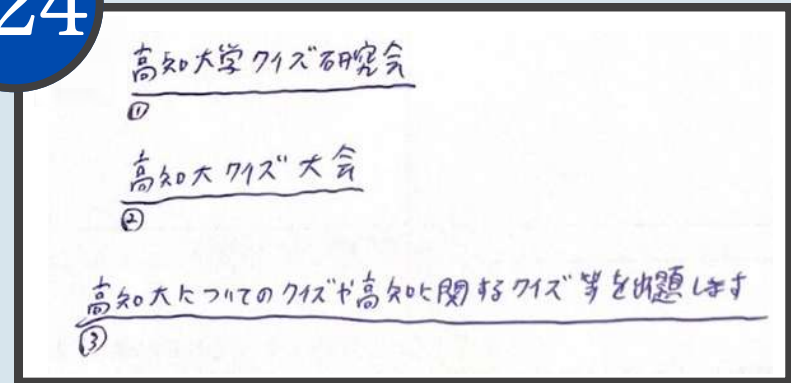 24
高知大学クイズ研究会
①
高知大クイズ大会
②
高知大についてのクイズや高知に関するクイズ等を出題します
③